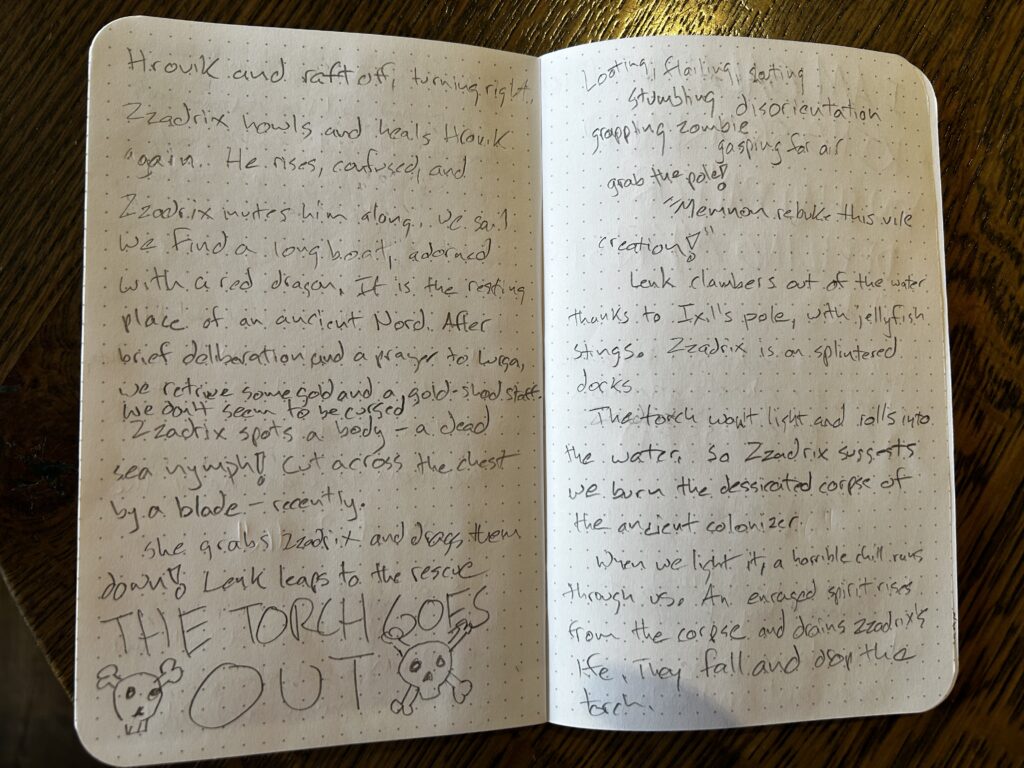 Hrovik and raft off, turning right.
Zzadrix howls and heals Hrovik
again. He rises, confused, and
Zzadrix invites him along. We sail
We find a longboat, adorned
with a red dragon. It is the resting
place of an ancient Nord. After
brief deliberation and a prayer to Lurga,
we retrive some gold and a gold-shod staff.
We don't seem to be cursed
Zzadrix spots a body - a dead
sea nymph! Cut across the chest
by a blade - recently.
She grabs Zzadrix and drags them
down! Lenk leaps to the rescue
THE TORCH GOES
OUT
Looting, flailing,
stumbling disorientation
grappling zombie
gasping for air
grab the pole!
"Memnon rebuke this vile
creation!"
Lenk clambers out of the water
thanks to Ixil's pole, with jellyfish
stings. Zzadrix is on splintered
docks
The torch won't light and rolls into
the water. So Zzadrix suggests
we burn the dessicated corpse of
the ancient colonizer.
When we light it, a horrible chill runs
through us. An enraged spirit rises
from the corpse and drains Zzadrix's
life. They fall and drop the
torch.